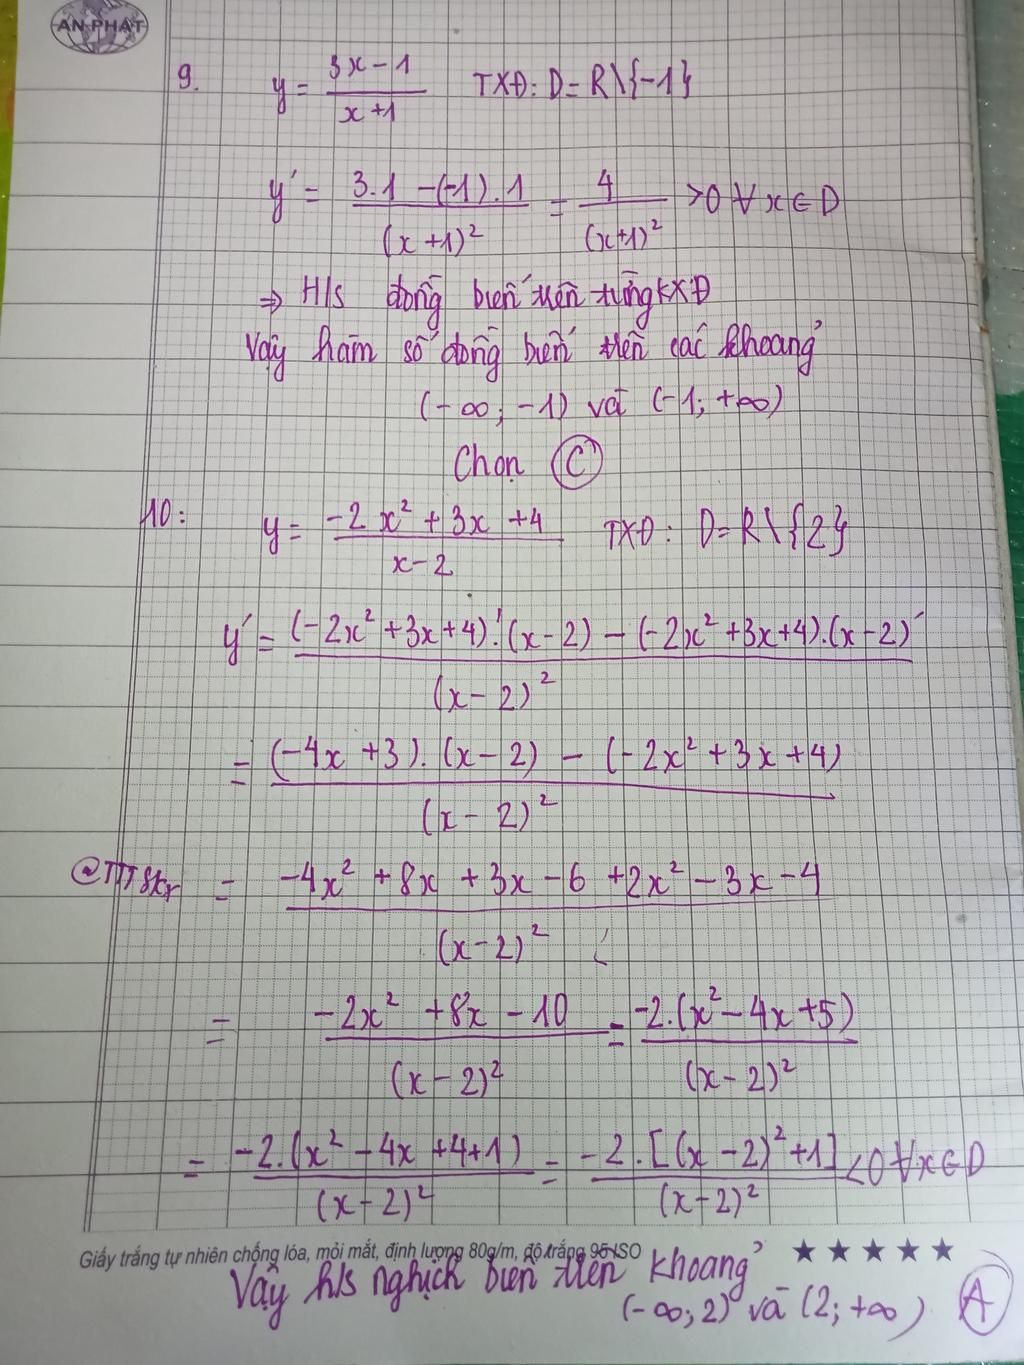 AN PHÁT
9. y = 3x - 1 / x + 1 TXĐ: D = R\{-1}
y' = 3.1 - (-1).1 / (x + 1)² = 4 / (x+1)² > 0 ∀x ∈ D
⇒ H/s đồng biến trên từng KXĐ
Vậy hàm số đồng biến trên các khoảng
(-∞; -1) và (-1; +∞)
Chọn C
10: y = -2x² + 3x + 4 / x - 2 TXĐ: D = R\{2}
y' = (-2x² + 3x + 4)'.(x - 2) - (-2x² + 3x + 4).(x - 2)' / (x - 2)²
= (-4x + 3).(x - 2) - (-2x² + 3x + 4) / (x - 2)²
@TTTSkr = -4x² + 8x + 3x - 6 + 2x² - 3x - 4 / (x - 2)²
= -2x² + 8x - 10 / (x - 2)² = -2.(x² - 4x + 5) / (x - 2)²
= -2.(x² - 4x + 4 + 1) / (x - 2)² = -2.[(x - 2)² + 1] / (x - 2)² < 0 ∀x ∈ D
Giấy trắng tự nhiên chống lóa, mỏi mắt, định lượng 80g/m, độ trắng 95 ISO ★ ★ ★ ★ ★
Vậy h/s nghịch biến trên khoảng
(-∞; 2) và (2; +∞) A